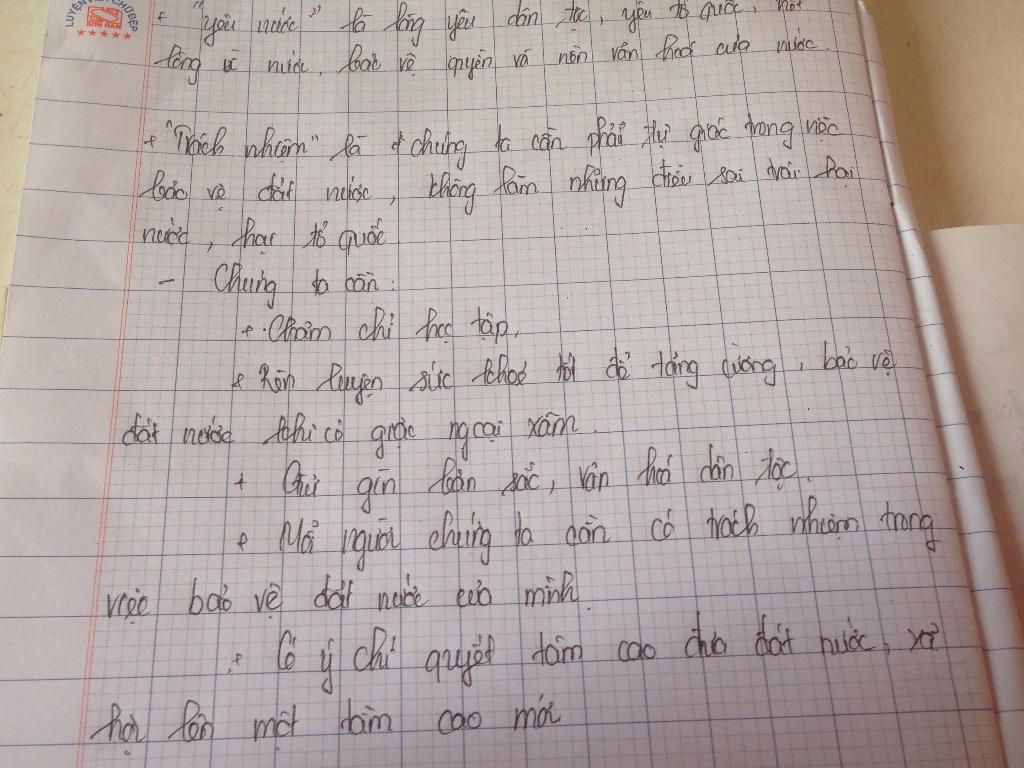 LUYỆN VIẾT CHỮ ĐẸP
+ "yêu nước" là lòng yêu dân tộc, yêu tổ quốc, một
lòng vì nước, bảo vệ quyền và nền văn hoá của nước.
+ "Trách nhiệm" là chúng ta cần phải tự giác trong việc
bảo vệ đất nước, không làm những điều sai trái hại
nước, hại tổ quốc
- Chúng ta cần:
+ Chăm chỉ học tập.
+ Rèn luyện sức khoẻ tốt để tăng cường, bảo vệ
đất nước khi có giặc ngoại xâm.
+ Giữ gìn bản sắc, văn hoá dân tộc.
+ Mỗi người chúng ta cần có trách nhiệm trong
việc bảo vệ đất nước của mình.
+ Có ý chí quyết tâm cao đưa đất nước, xã
hội lên một tầm cao mới